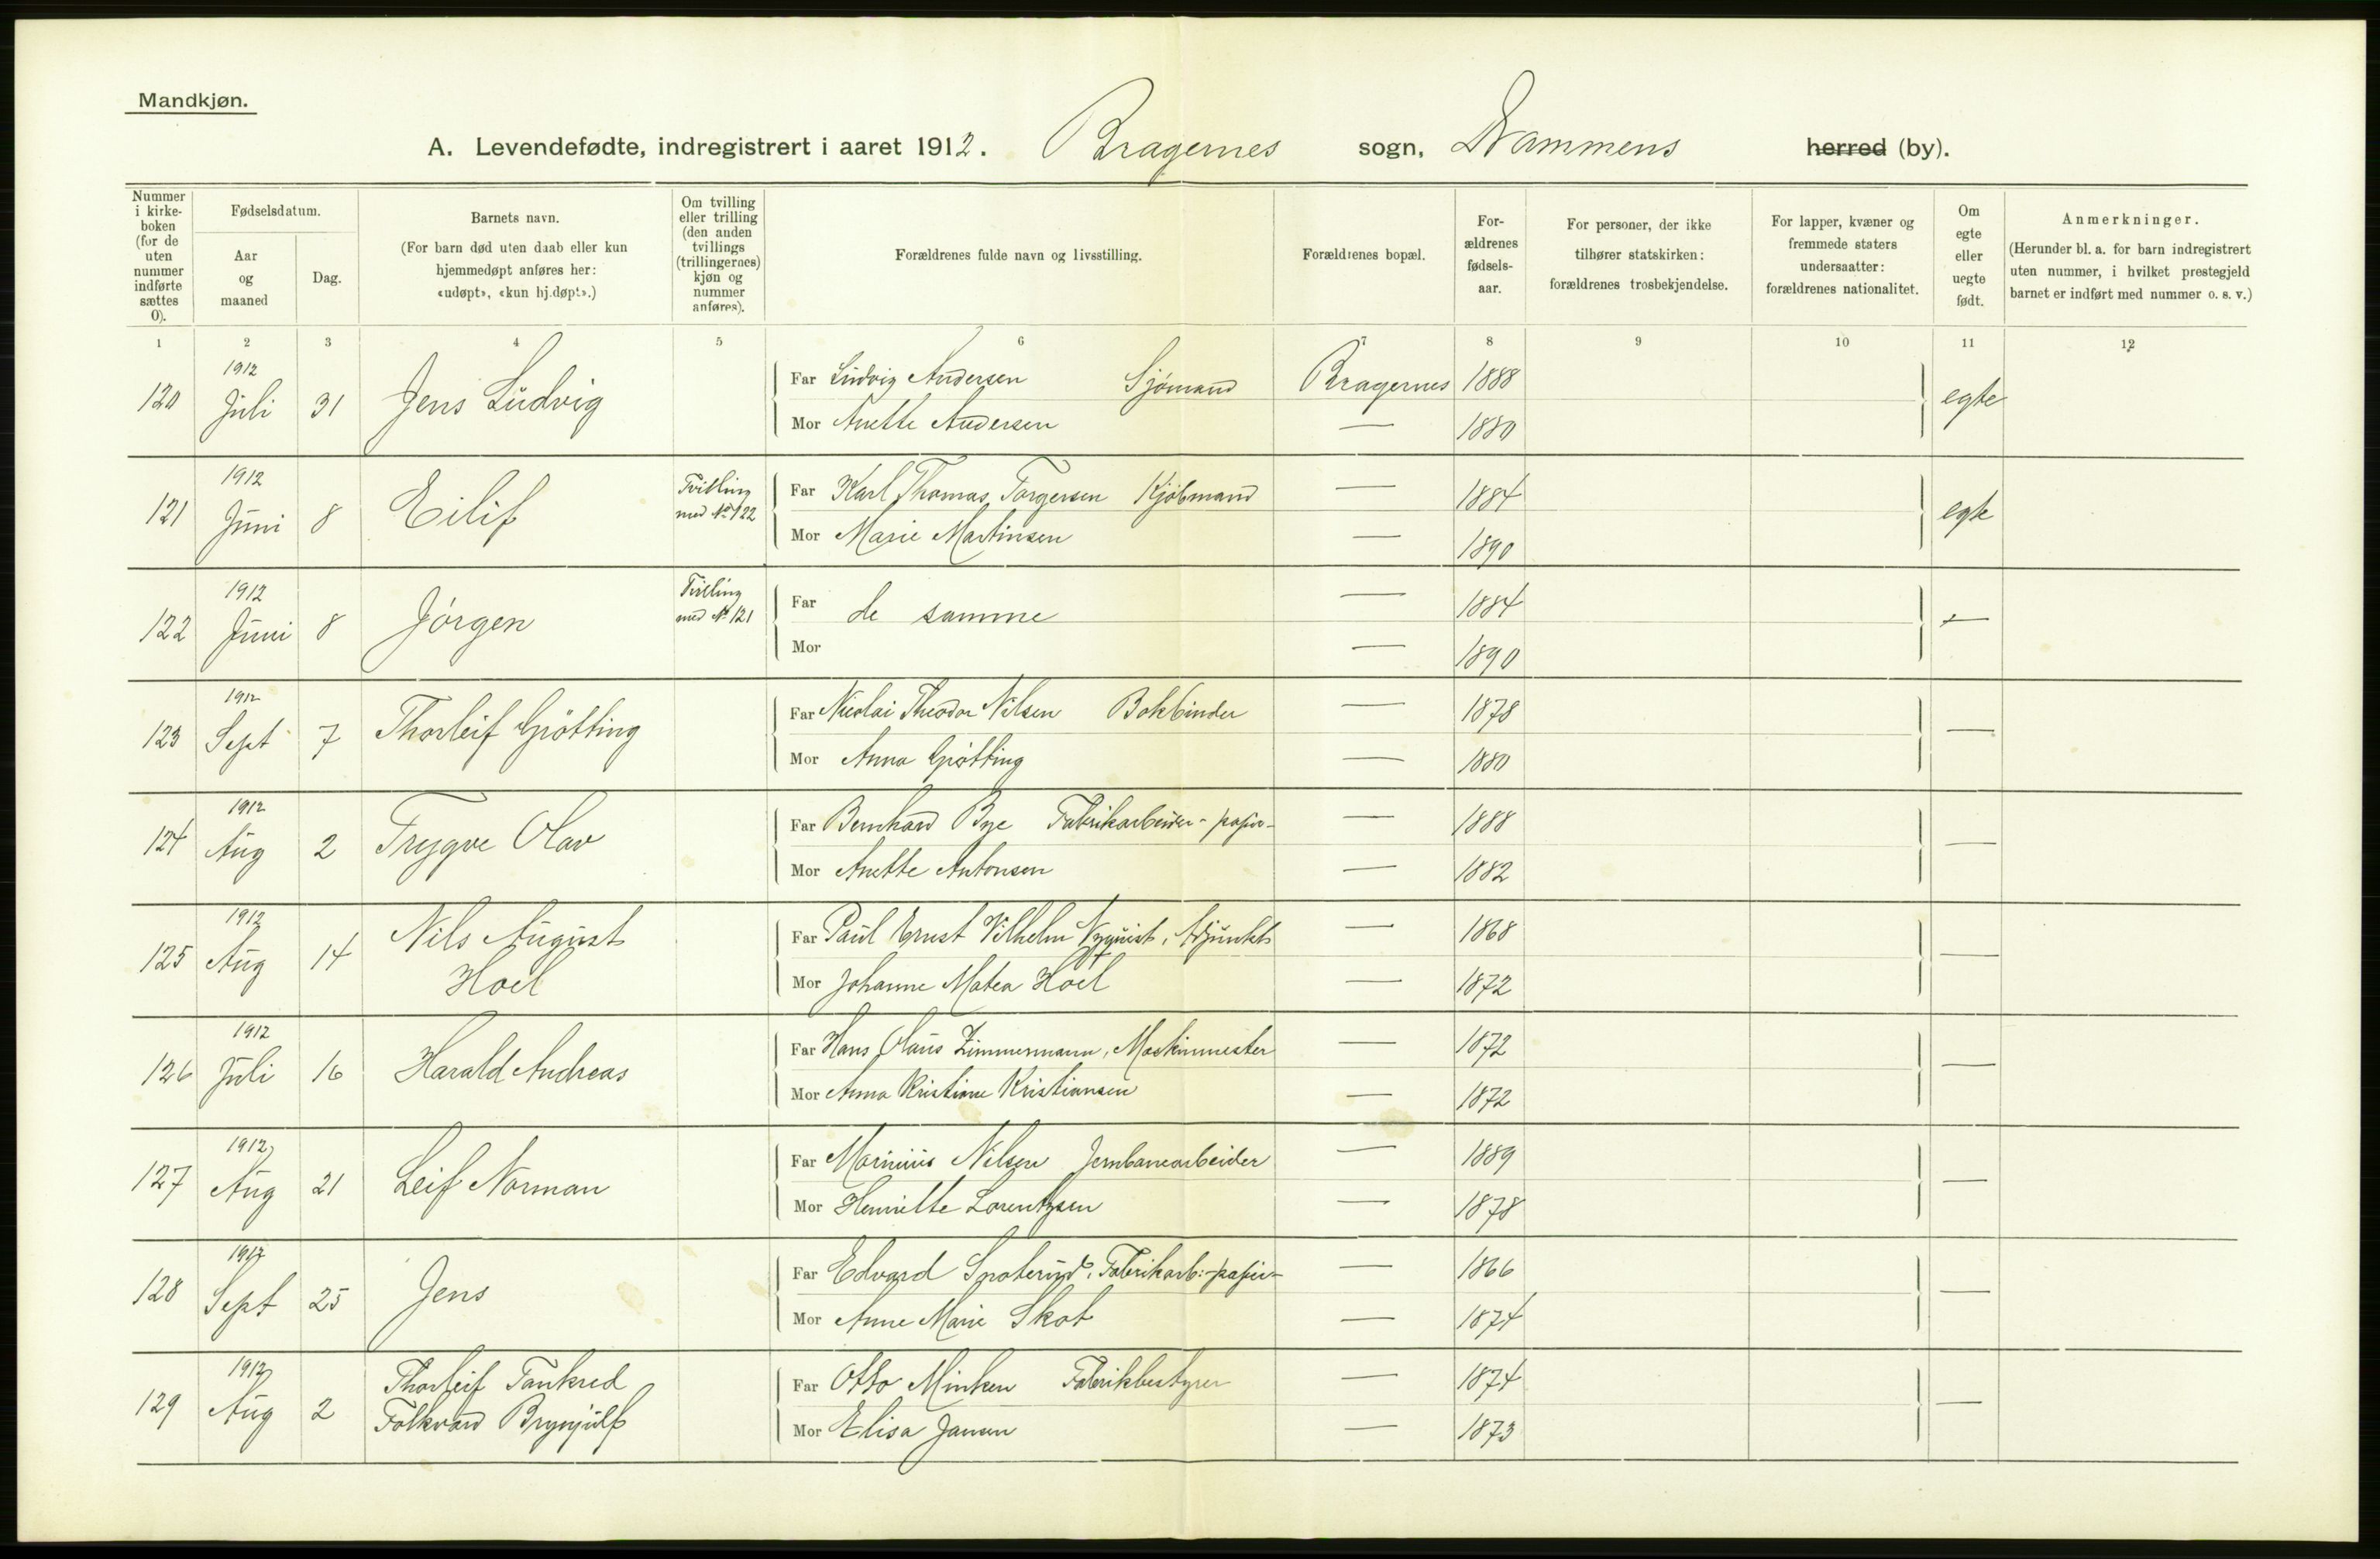 Mandkjøn.
A. Levendefødte, indregistrert i aaret 1912. Bragernes sogn, Drammens herred (by).
Nummer i kirke-boken (for de uten nummer indførte sættes 0).
Fødselsdatum.
Aar og maaned
Dag.
Barnets navn.
(For barn død uten daab eller kun hjemmedøpt anføres her: «udøpt», «kun hj.døpt».)
Om tvilling eller trilling (den anden tvillings (trillingernes) kjøn og nummer anføres).
Forældrenes fulde navn og livsstilling.
Forældrenes bopæl.
For-ældrenes fødsels-aar.
For personer, der ikke tilhører statskirken: forældrenes trosbekjendelse.
For lapper, kvæner og fremmede staters undersaatter: forældrenes nationalitet.
Om egte eller uegte født.
Anmerkninger.
(Herunder bl. a. for barn indregistrert uten nummer, i hvilket prestegjeld barnet er indført med nummer o. s. v.)
1 2 3 4 5 6 7 8 9 10 11 12
120 1912 Juli 31 Jens Ludvig Far Ludvig Andersen Sjømand Bragernes 1888 egte
Mor Anette Andersen — 1880
121 1912 Juni 8 Eilif Tvilling med No 122 Far Karl Thomas Torgersen Kjøbmand — 1884 egte
Mor Marie Martinsen — 1890
122 1912 Juni 8 Jørgen Tvilling med No 121 Far de samme — 1884 —
Mor — 1890
123 1912 Sept 7 Thorleif Gjøtting Far Nicolai Theodor Nilsen Bokbinder — 1878 —
Mor Anna Gjøtting — 1880
124 1912 Aug 2 Trygve Olav Far Bernhard Bye Fabrikarbeider - papir- — 1888 —
Mor Anette Antonsen — 1882
125 1912 Aug 14 Nils August Hoel Far Paul Ernst Vilhelm Nyquist, Adjunkt — 1868 —
Mor Johanne Matea Hoel — 1872
126 1912 Juli 16 Harald Andreas Far Hans Olaus Zimmermann, Maskinmester — 1872 —
Mor Anna Kristine Kristiansen — 1872
127 1912 Aug 21 Leif Norman Far Marinius Nilsen Jernbanearbeider — 1889 —
Mor Henriette Lorentzsen — 1878
128 1912 Sept 25 Jens Far Edvard Fabrikarb: -papir- — 1866 —
Mor Anne Marie — 1874
129 1912 Aug 2 Thorleif Tankred Folkvard Brynjulf Far Otto Minken Fabrikbestyrer — 1874 —
Mor Elisa Jansen — 1873